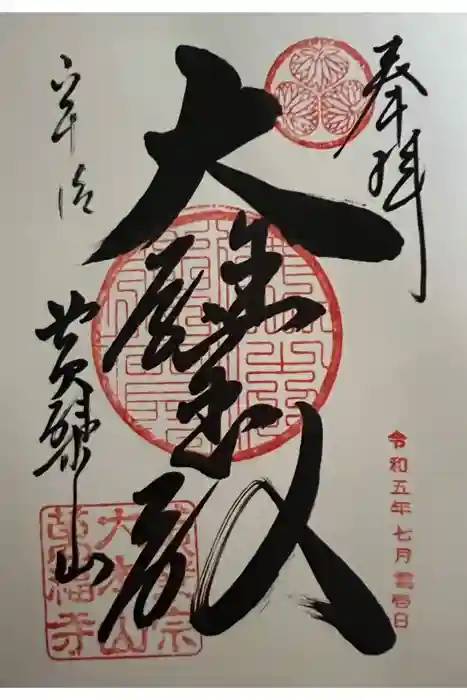 奉拝
大雄寶殿
宇治
黄檗山
令和五年七月零壱日
黄檗宗
大本山
萬福寺